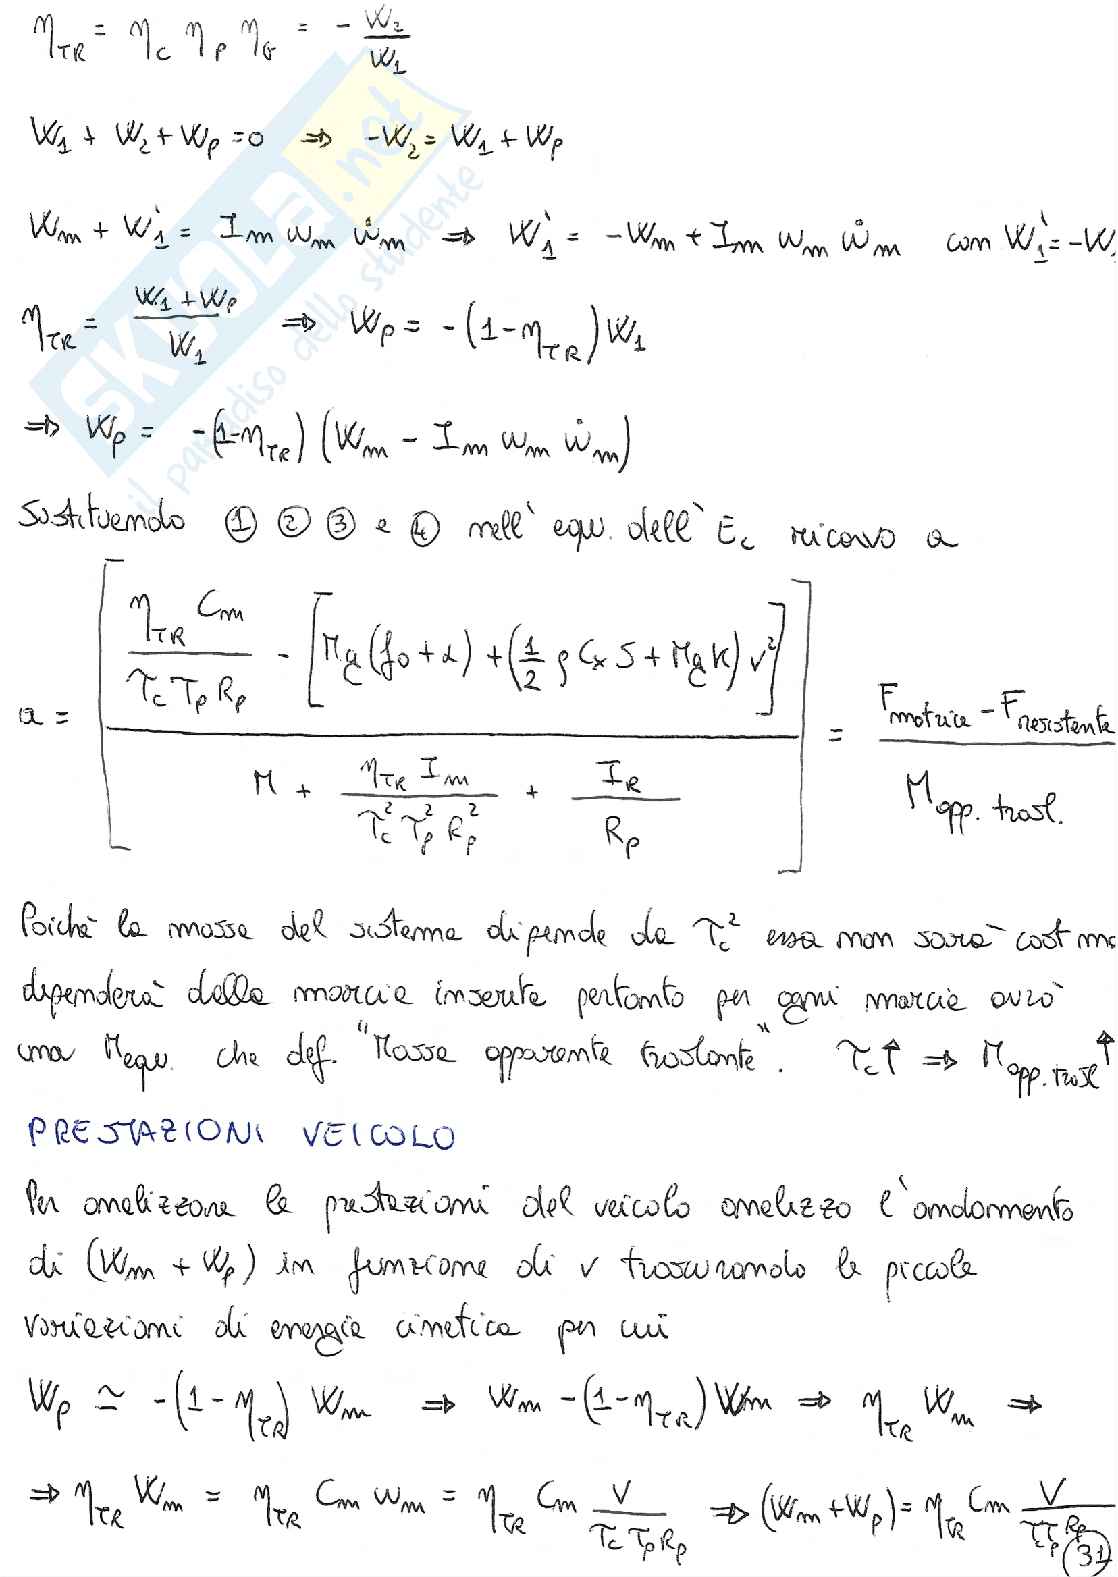 η_TR = η_c η_p η_G = - W_2 / W_1
W_1 + W_2 + W_p = 0 ⇒ -W_2 = W_1 + W_p
W_m + W_1' = I_m ω_m ω̇_m ⇒ W_1' = -W_m + I_m ω_m ω̇_m con W_1' = -W
η_TR = (W_1 + W_p) / W_1 ⇒ W_p = -(1-η_TR) W_1
⇒ W_p = -(1-η_TR) (W_m - I_m ω_m ω̇_m)
Sostituendo ① ② ③ e ④ nell' equ. dell' E_c ricavo a
a = [ ( η_TR C_m / (τ_c τ_p R_p) - [ Mg(f_0 + α) + (1/2 ρ C_x S + Mg K) v² ] ) / ( M + η_TR I_m / (τ_c² τ_p² R_p²) + I_R / R_p ) ] = (F_motrice - F_resistente) / M_app. trasl.
Poichè la massa del sistema dipende da τ_c² essa non sarà cost ma
dipenderà dalla marcia inserita pertanto per ogni marcia avrò
una M_equ. che def. "Massa apparente traslante". τ_c ↑ ⇒ M_app. trasl ↑
PRESTAZIONI VEICOLO
Per analizzare le prestazioni del veicolo analizzo l'andamento
di (W_m + W_p) in funzione di v trascurando le piccole
variazioni di energia cinetica per cui
W_p ≃ -(1-η_TR) W_m ⇒ W_m - (1-η_TR) W_m ⇒ η_TR W_m ⇒
⇒ η_TR W_m = η_TR C_m ω_m = η_TR C_m V / (τ_c τ_p R_p) ⇒ (W_m + W_p) = η_TR C_m V / (τ_c τ_p R_p)
31
SKUOLA.net
il paradiso dello studente